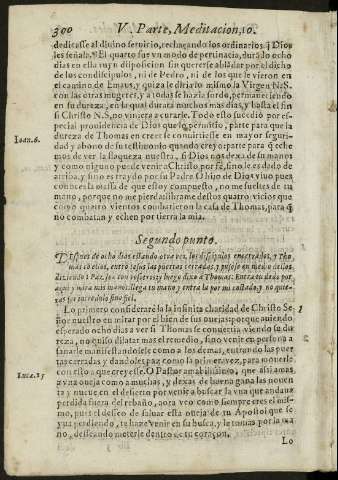 300 V. Parte, Meditacion, 10.
dedicasse al diuino seruicio, rechaçando los ordinarios q̃ Dios
les señala. El quarto fue vn modo de pertinacia, durado ocho
dias en esta ruyn disposicion sin querer se ablãdar por el dicho
de los condiscipulos, ni de Pedro, ni de los que le vieron en
el camino de Emaus, y quiza se diria lo mismo la Virgen N.S.
con las otras mugeres, y a todo se hazia sordo, permaneciendo
en su dureza, en la qual durara muchos mas dias, y hasta el fin
si Christo N.S, no viniera a curarle. Todo esto sucedió por es-
pecial prouidencia de Dios que lo permitio, parte para que la
dureza de Thomas en creer se conuirtiesse en mayor seguri-
Ioan. 6. dad y abono de su testimonio quando crey o: parte para q̃ eche
mos de ver la flaqueza nuestra, si Dios nos dexa de su mano
y como niguno puede venir a Christo por fé, sino le es dado de
arriba, y sino es traydo por su Padre. O hijo de Dios viuo pues
conoces la massa de que estoy compuesto, no me sueltes de tu
mano, porque no me pierda: librame destos quatro vicios que
como quatro vientos combatieron la casa de Thomas, para q̃
no combatan y echen por tierra la mia.
Segundo punto.
Despues de ocho dias estando otra vez, los discipulos encerrados, y Tho
mas cõ ellos, entrò Iesus las puertas cerradas, y pusose en medio dellos
diziendo: Paz sea con vosotros; luego dixo a Thomas: Entra tu dedo por
aqui y mira mis manos: llega tu mano y entra la por mi costado, y no quie-
ras ser incredulo sino fiel.
Lo primero considerarè la infinita charidad de Christo Se- 1
ñor nuestro en mirar por el bien de sus ouejas: porque auiendo
esperado ocho dias a ver si Thomas se conuertia viendo su du
reza, no quiso dilatar mas el remedio, sino venir en persona a
sanarle manifestandosele como a los demas, entrando las puer
tas cerradas y dandoles paz como la primera vez, para mouerle
con esto a que creyesse. O Pastor amabilissimo, que assi amas
Luca. 15 a vna oueja como a muchas, y dexas de buena gana las nouen
ta y nueue en el desierto por venir a buscar la vna que andaua
perdida fuera del rebaño, aora veo como siempre eres el mis-
mo, pues el desseo de saluar esta oueja de tu Apostol que se
yua perdiendo, te haze venir en su busca, y le tomas por la ma
no, desseando meterle dentro de tu coraçon.
Lo